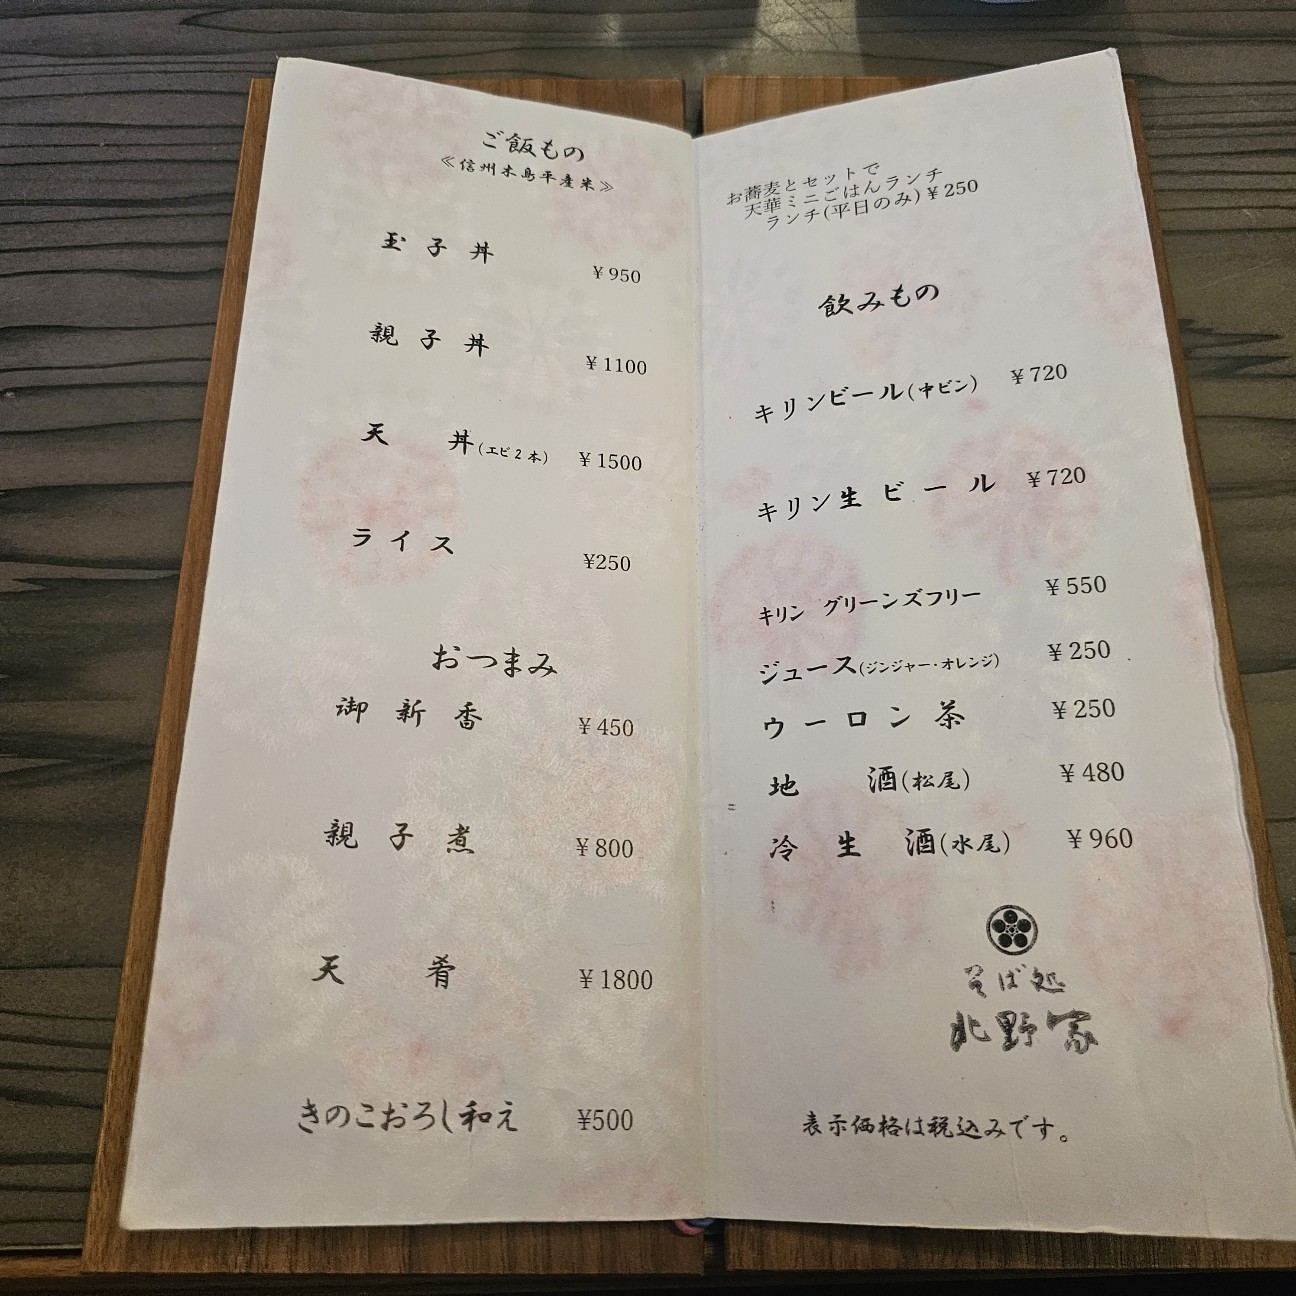 ご飯もの
≪信州木島平産米≫
玉子丼 ¥950
親子丼 ¥1100
天丼(エビ2本) ¥1500
ライス ¥250
おつまみ
御新香 ¥450
親子煮 ¥800
天肴 ¥1800
きのこおろし和え ¥500
お蕎麦とセットで
天華ミニごはんランチ
ランチ(平日のみ)¥250
飲みもの
キリンビール(中ビン) ¥720
キリン生ビール ¥720
キリン グリーンズフリー ¥550
ジュース(ジンジャー・オレンジ) ¥250
ウーロン茶 ¥250
地酒(松尾) ¥480
冷生酒(水尾) ¥960
そば処
北野家
表示価格は税込みです。